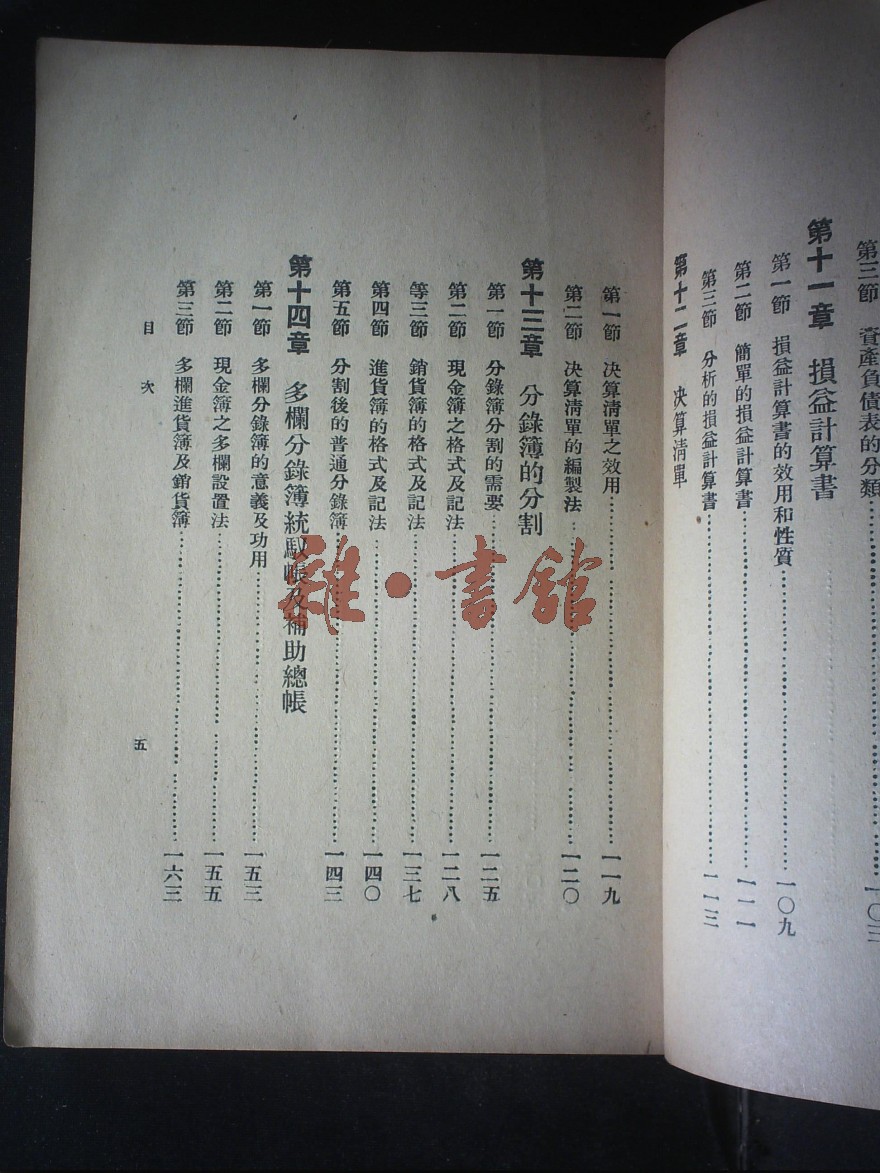 第三節 資產負債表的分類…一〇三
第十一章 損益計算書
第一節 損益計算書的效用和性質…一〇九
第二節 簡單的損益計算書…一一一
第三節 分析的損益計算書…一一三
第十二章 決算清單
第一節 決算清單之效用…一一九
第二節 決算清單的編製法…一二〇
第十三章 分錄簿的分割
第一節 分錄簿分割的需要…一二五
第二節 現金簿之格式及記法…一二八
等三節 銷貨簿的格式及記法…一三七
第四節 進貨簿的格式及記法…一四〇
第五節 分割後的普通分錄簿…一四三
第十四章 多欄分錄簿統馭帳及補助總帳
第一節 多欄分錄簿的意義及功用…一五三
第二節 現金簿之多欄設置法…一五五
第三節 多欄進貨簿及銷貨簿…一六三
目次
五
雜·書館